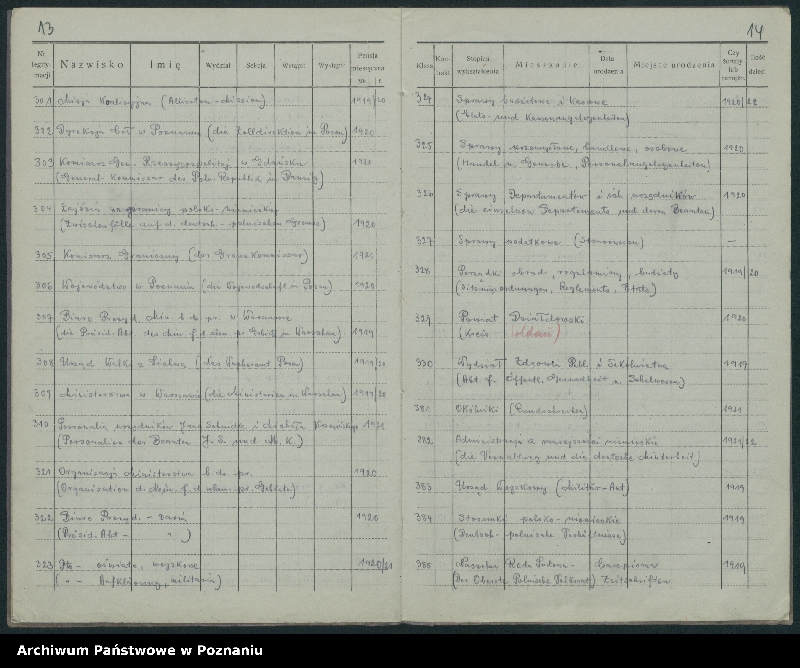 13
Nr. legitymacji Nazwisko Imię Wydział Sekcja Wstąpił: Wystąpił: Pensja miesięczna Mk. f.
301 Misja Koalicyjna (Alliierten-Mission) 1919/20
322 Dyrekcja Ceł w Poznaniu (die Zolldirektion in Posen) 1920
303 Komisarz Gen. Rzeczypospolitej w Gdańsku 1920
(General-Kommissar der Poln. Republik in Danzig)
304 Zajścia na granicy polsko-niemieckiej
(Zwischenfälle auf d. deutsch-polnischen Grenze) 1920
305 Komisarz Graniczny (der Grenzkommissar)
306 Województwo w Poznaniu (die Wojewodschaft in Posen) 1920
307 Biuro Prezyd. Min. b. dz. pr. w Warszawie
(die Präsid. Abt. des Min. f. d. ehem. pr. Gebiet in Warschau) 1919
308 Urząd Walki z Lichwą (das Wucheramt Posen) 1919/20
309 Ministerstwa w Warszawie (die Ministerien in Warschau) 1919/20
310 Personalia urzędników Jana i Michała 1921
(Personalien der Beamten J. S. und M. K.)
321 Organizacja Ministerstwa b. dz. pr. 1920
(Organisation d. Min. f. d. ehem. pr. Gebiets)
322 Biuro Prezyd. - 1920
(Präsid. Abt - " )
323 Dto - oświata, wojskowe 1920/21
( " - Aufklärung, militaria)
14
Klasa Kaw. żonaty Stopień wykształcenia Mieszkanie Data urodzenia Miejsce urodzenia Czy żonaty lub Ilość dzieci
324 Sprawy budżetowe i kasowe 1920/22
(Etats- und Kassenangelegenheiten)
325 Sprawy przemysłowe, handlowe, osobowe 1920
(Handel u. Gewerbe, Personalangelegenheiten)
326 Sprawy Departamentów i ich urzędników 1920
(die einzelnen Departements und deren Beamten)
327 Sprawy podatkowe (Steuerwesen) —
328 Porządki obrad, regulaminy, budżety 1919/20
(Sitzungsordnungen, Reglements, Etats)
329 Powiat Działdowski 1920
(Kreis Soldau)
330 Wydział Zdrowia Publ. i Szkolnictwa 1919
(Abt. f. Öffentl. Gesundheit u. Schulwesen)
381 Okólniki (Rundschreiben) 1921
382 Administracja a mniejszości niemieckie 1921/22
(die Verwaltung und die deutsche Minderheit)
383 Urząd Wojskowy (Militär-Amt) 1919
384 Stosunki polsko-niemieckie 1919
(Deutsch-polnische Verhältnisse)
385 Naczelna Rada Ludowa - Czasopisma 1919
(Der Oberste Polnische Volksrat) Zeitschriften
Archiwum Państwowe w Poznaniu